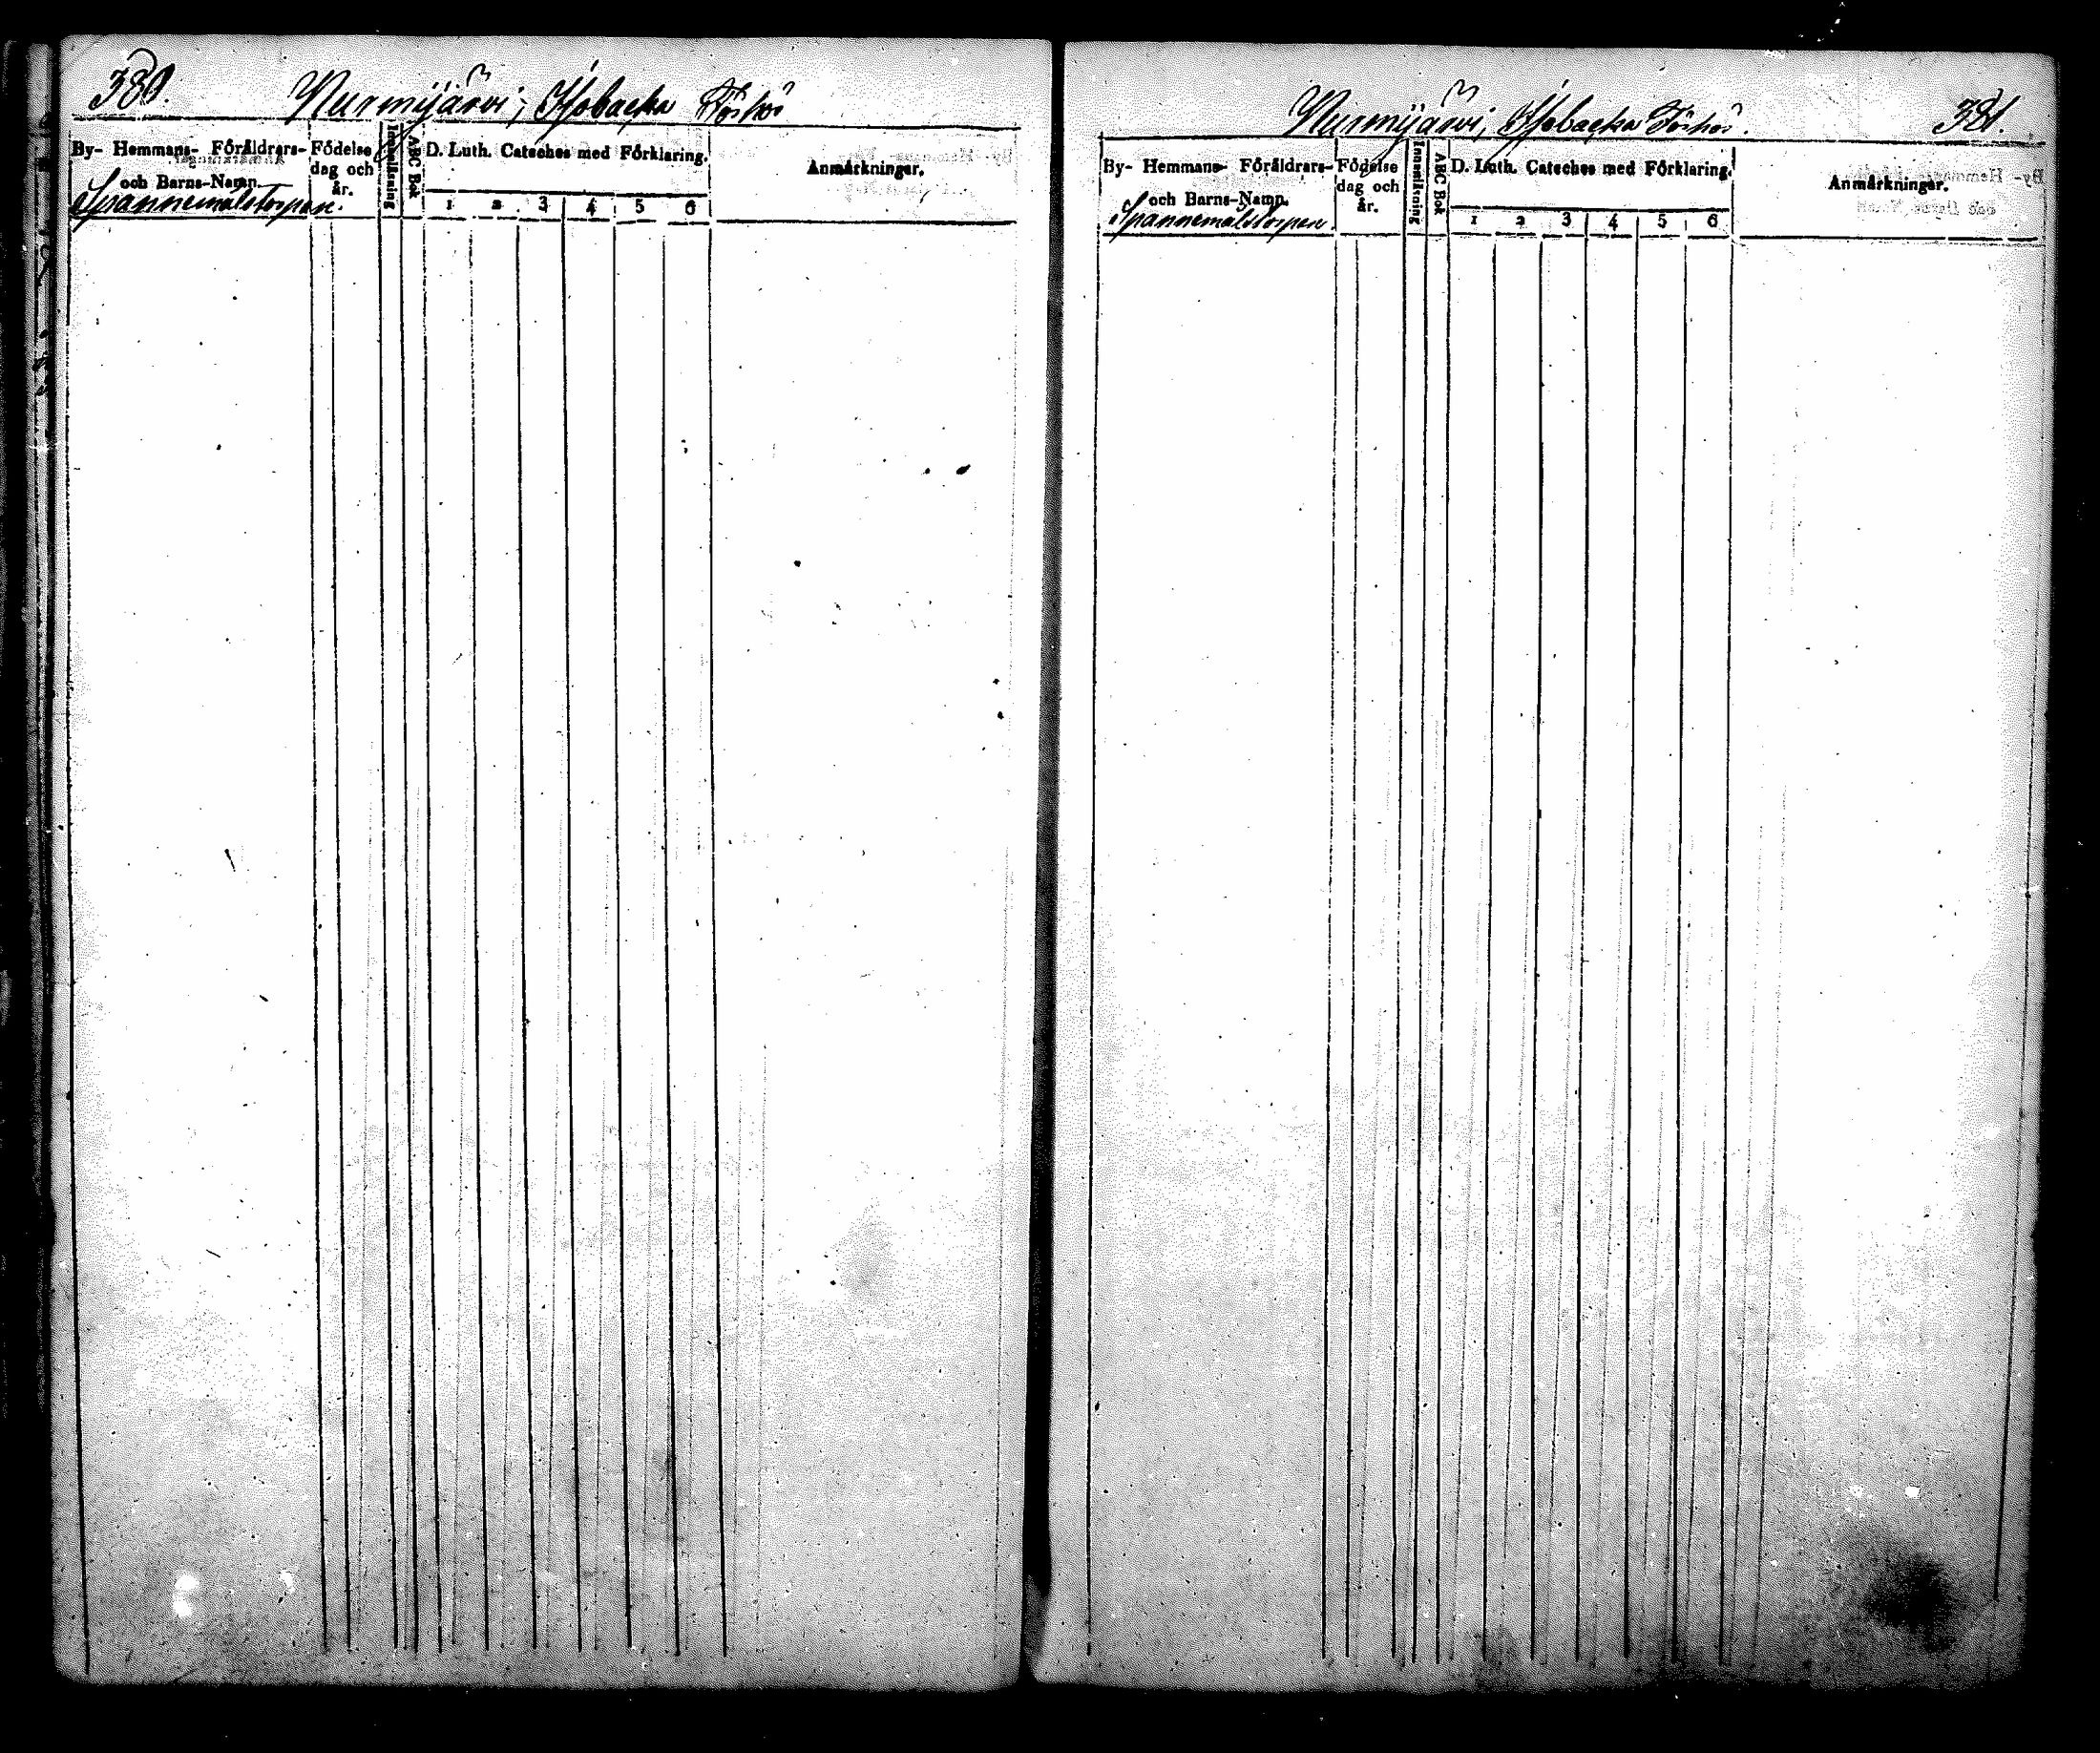 380.
Nurmijärvi,
By- Hemmans- Föräldrars-
och Barns-Namn.
Födelse
dag och
år.
Innanläsning
ABC Bok
D. Luth. Cateches med Förklaring.
1 2 3 4 5 6
Anmärkningar.
Spannemålstorpen.
Nurmijärvi,
381.
By- Hemmans- Föräldrars-
och Barns-Namn.
Födelse
dag och
år.
Innanläsning
ABC Bok
D. Luth. Cateches med Förklaring.
1 2 3 4 5 6
Anmärkningar.
Spannemålstorpen